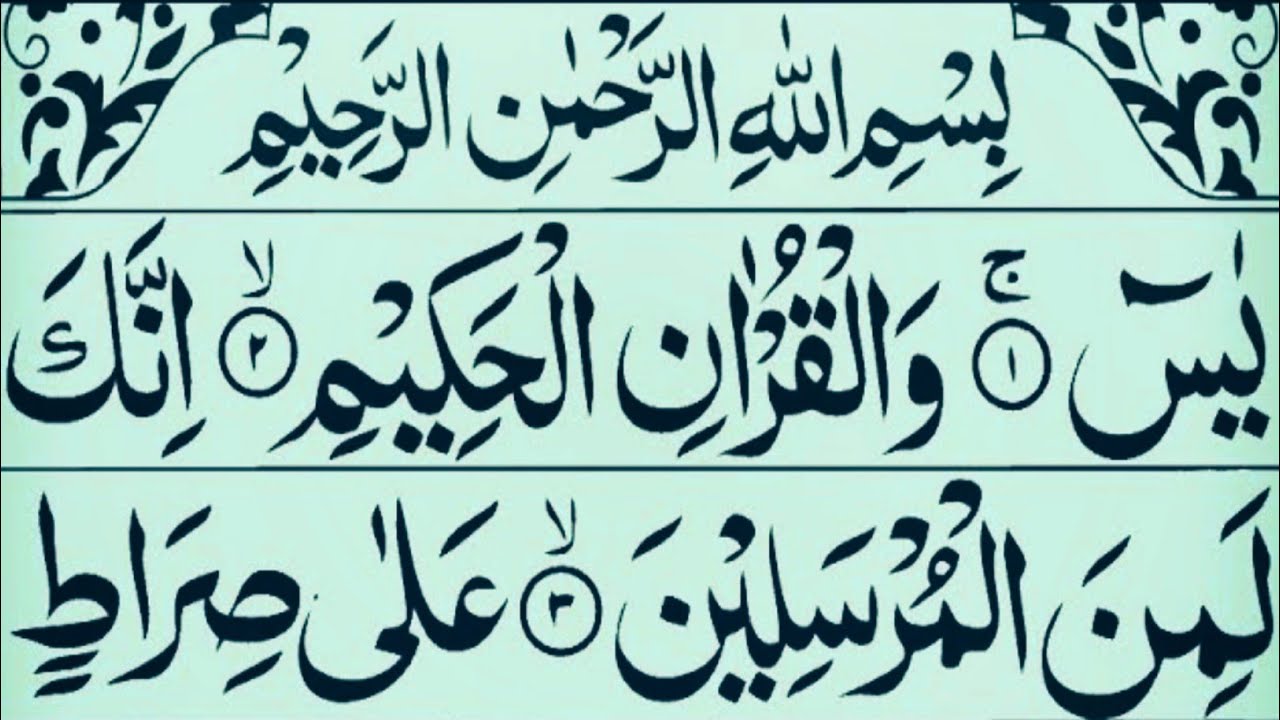 بِسْمِ اللّٰهِ الرَّحْمٰنِ الرَّحِيْمِ
يٰسٓ ۚ ﴿١﴾ وَالْقُرْاٰنِ الْحَكِيْمِ ۙ ﴿٢﴾ اِنَّكَ
لَمِنَ الْمُرْسَلِيْنَ ۙ ﴿٣﴾ عَلٰى صِرَاطٍ